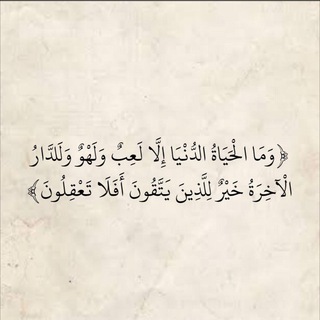 ﴿وَمَا الْحَيَاةُ الدُّنْيَا إِلَّا لَعِبٌ وَلَهْوٌ وَلَلدَّارُ
الْآخِرَةُ خَيْرٌ لِلَّذِينَ يَتَّقُونَ أَفَلَا تَعْقِلُونَ﴾